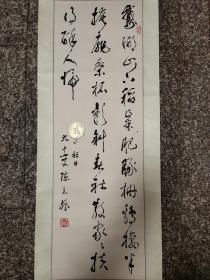 鵞湖山下稻粱肥豚栅鸡栖半
掩扉桑柘影斜春社散家家扶
得醉人归
社日
九十叟陈振